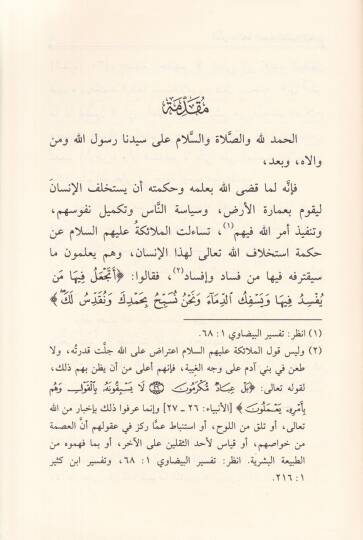 مُقَدِّمَة
الحمد لله والصَّلاة والسَّلام على سيدنا رسول الله ومن
والاه، وبعد،
فإنَّه لما قضى الله بعلمه وحكمته أن يستخلف الإنسانَ
ليقوم بعمارة الأرض، وسياسة النَّاس وتكميل نفوسهم،
وتنفيذ أمر الله فيهم(١)، تساءلت الملائكةُ عليهم السلام عن
حكمة استخلاف الله تعالى لهذا الإنسان، وهم يعلمون ما
سيقترفه فيها من فساد وإفساد(٢)، فقالوا: ﴿أَتَجْعَلُ فِيهَا مَن
يُفْسِدُ فِيهَا وَيَسْفِكُ الدِّمَاءَ وَنَحْنُ نُسَبِّحُ بِحَمْدِكَ وَنُقَدِّسُ لَكَ﴾
(١) انظر: تفسير البيضاوي ١: ٦٨.
(٢) وليس قول الملائكة عليهم السلام اعتراض على الله جلَّت قدرتُه، ولا
طعن في بني آدم على وجه الغيبة، فإنهم أعلى من أن يظن بهم ذلك،
لقوله تعالى: ﴿بَلْ عِبَادٌ مُّكْرَمُونَ ۝٢٦ لَا يَسْبِقُونَهُ بِالْقَوْلِ وَهُم
بِأَمْرِهِ يَعْمَلُونَ﴾ [الأنبياء: ٢٦ - ٢٧] وإنما عرفوا ذلك بإخبار من الله
تعالى، أو تلق من اللوح، أو استنباط عمَّا ركز في عقولهم أنَّ العصمة
من خواصهم، أو قياس لأحد الثقلين على الآخر، أو بما فهموه من
الطبيعة البشرية. انظر: تفسير البيضاوي ١: ٦٨، وتفسير ابن كثير
١: ٢١٦.